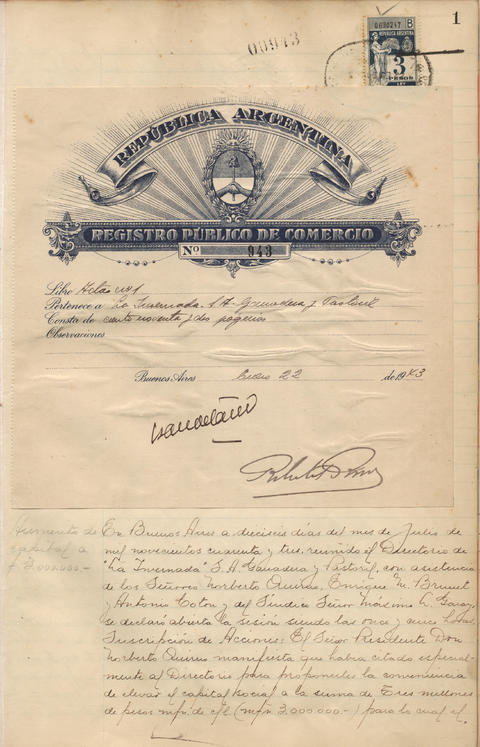 1
00943
0690247 B
REPUBLICA ARGENTINA
3
PESOS
LEY
REPÚBLICA ARGENTINA
REGISTRO PÚBLICO DE COMERCIO
Nº 943
Libro Actas nº 1
Pertenece a La Invernada S.A. Ganadera y Pastoril
Consta de ciento noventa y dos páginas
Observaciones
Buenos Aires Enero 22 de 1943
Aumento de
capital a
$ 3.000.000.-
En Buenos Aires a dieciseis días del mes de Julio de
mil novecientos cuarenta y tres, reunido el Directorio de
"La Invernada" S.A. Ganadera y Pastoril, con asistencia
de los Señores Norberto Quirno, Enrique M. Brunet
y Antonio Coton y del Síndico Señor Máximo L. Garay,
se declaró abierta la sesión siendo las once y horas.
Suscripción de Acciones: El Señor Presidente Don
Norberto Quirno manifiesta que habia citado especial-
mente al Directorio para proponerles la conveniencia
de elevar el capital social a la suma de Tres millones
de pesos m/n. de c/l (m$n 3.000.000.-) para lo cual el